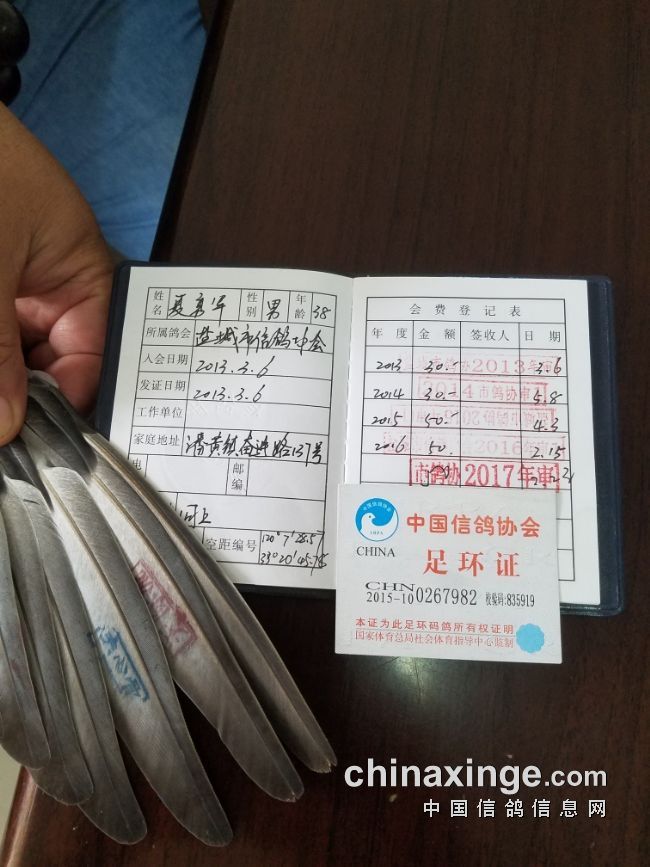 姓名 夏京军 性别 男 年龄 38
所属鸽会 盐城市信鸽协会
入会日期 2013.3.6
发证日期 2013.3.6
工作单位
家庭地址 潘黄镇奋进路137号
邮编
空距编号 120°7'28.5
33°20'45.7
会费登记表
年度 金额 签收人 日期
2013 30.- 2013年审 3.6
2014 30.- 2014市鸽协审 5.8
2015 50.- 4.3
2016 50. 2016 2.15
市鸽协2017年审
中国信鸽协会
CHINA 足环证
CHN
2015-10 0267982 校验码:835919
本证为此足环码鸽所有权证明
国家体育总局社会体育指导中心监制
chinaxinge.com
中国信鸽信息网